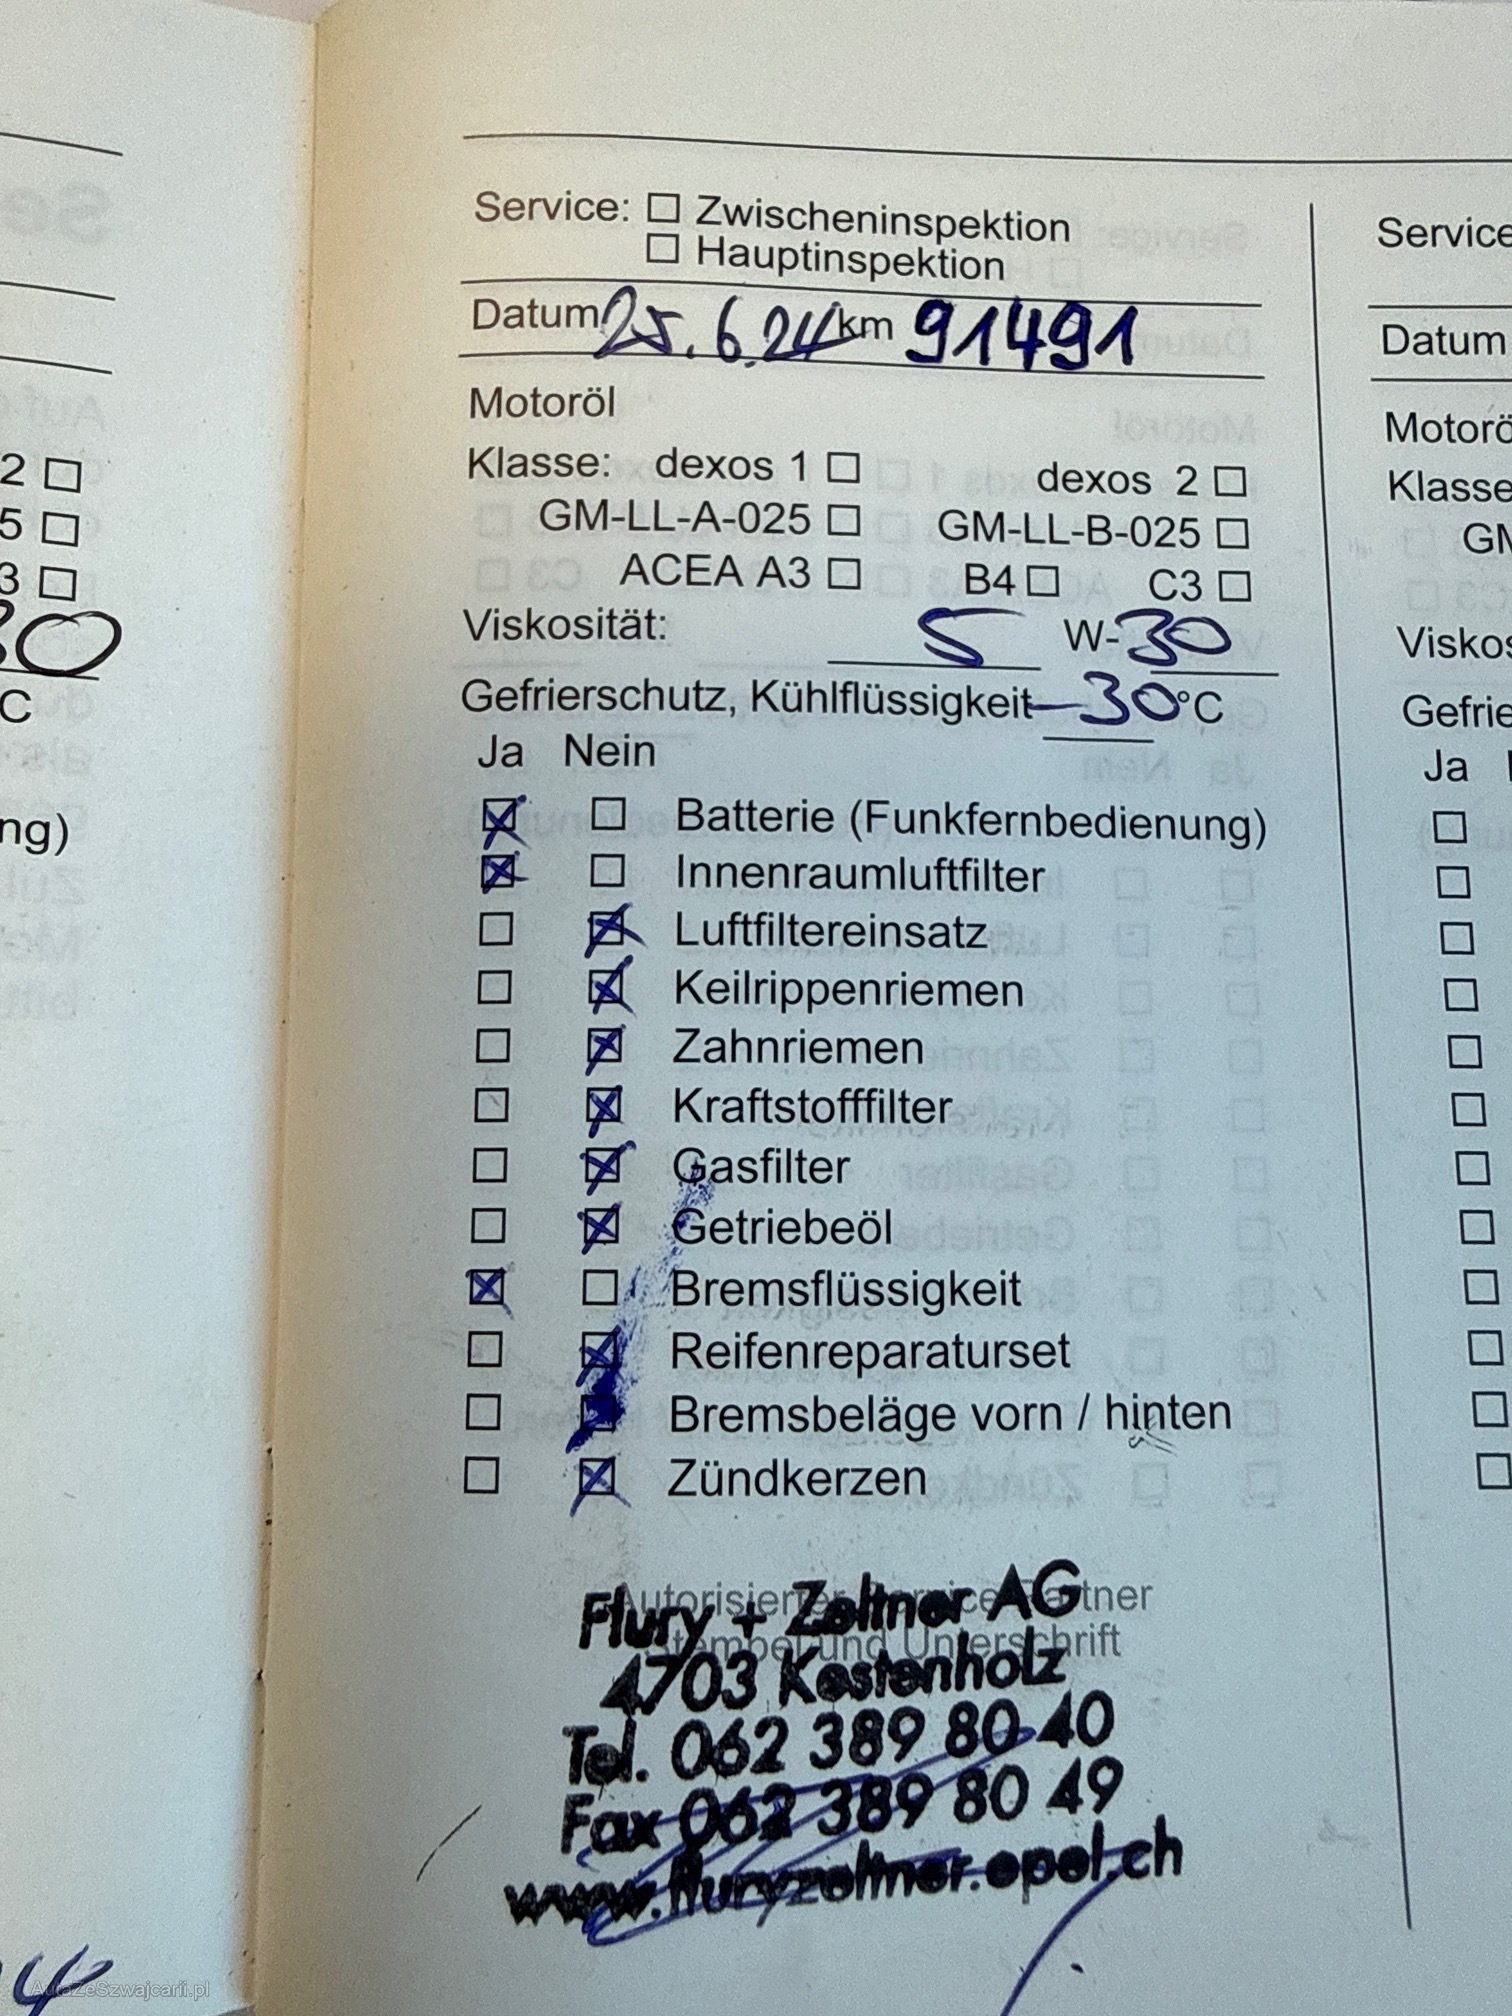 Service: ☐ Zwischeninspektion
☐ Hauptinspektion
Datum 25.6.24 km 91491
Motoröl
Klasse: dexos 1 ☐ dexos 2 ☐
GM-LL-A-025 ☐ GM-LL-B-025 ☐
ACEA A3 ☐ B4 ☐ C3 ☐
Viskosität: 5 W-30
Gefrierschutz, Kühlflüssigkeit -30°C
Ja Nein
☒ ☐ Batterie (Funkfernbedienung)
☒ ☐ Innenraumluftfilter
☐ ☒ Luftfiltereinsatz
☐ ☒ Keilrippenriemen
☐ ☒ Zahnriemen
☐ ☒ Kraftstofffilter
☐ ☒ Gasfilter
☐ ☒ Getriebeöl
☒ ☐ Bremsflüssigkeit
☐ ☒ Reifenreparaturset
☐ ☒ Bremsbeläge vorn / hinten
☐ ☒ Zündkerzen
Autorisierter Service Partner
Stempel und Unterschrift
Flury + Zeltner AG
4703 Kestenholz
Tel. 062 389 80 40
Fax 062 389 80 49
www.fluryzeltner.opel.ch
2 ☐
5 ☐
3 ☐
30
C
ng)
Service
Datum
Motorö
Klasse
GM
Viskos
Gefrie
Ja
AutaZeSzwajcarii.pl